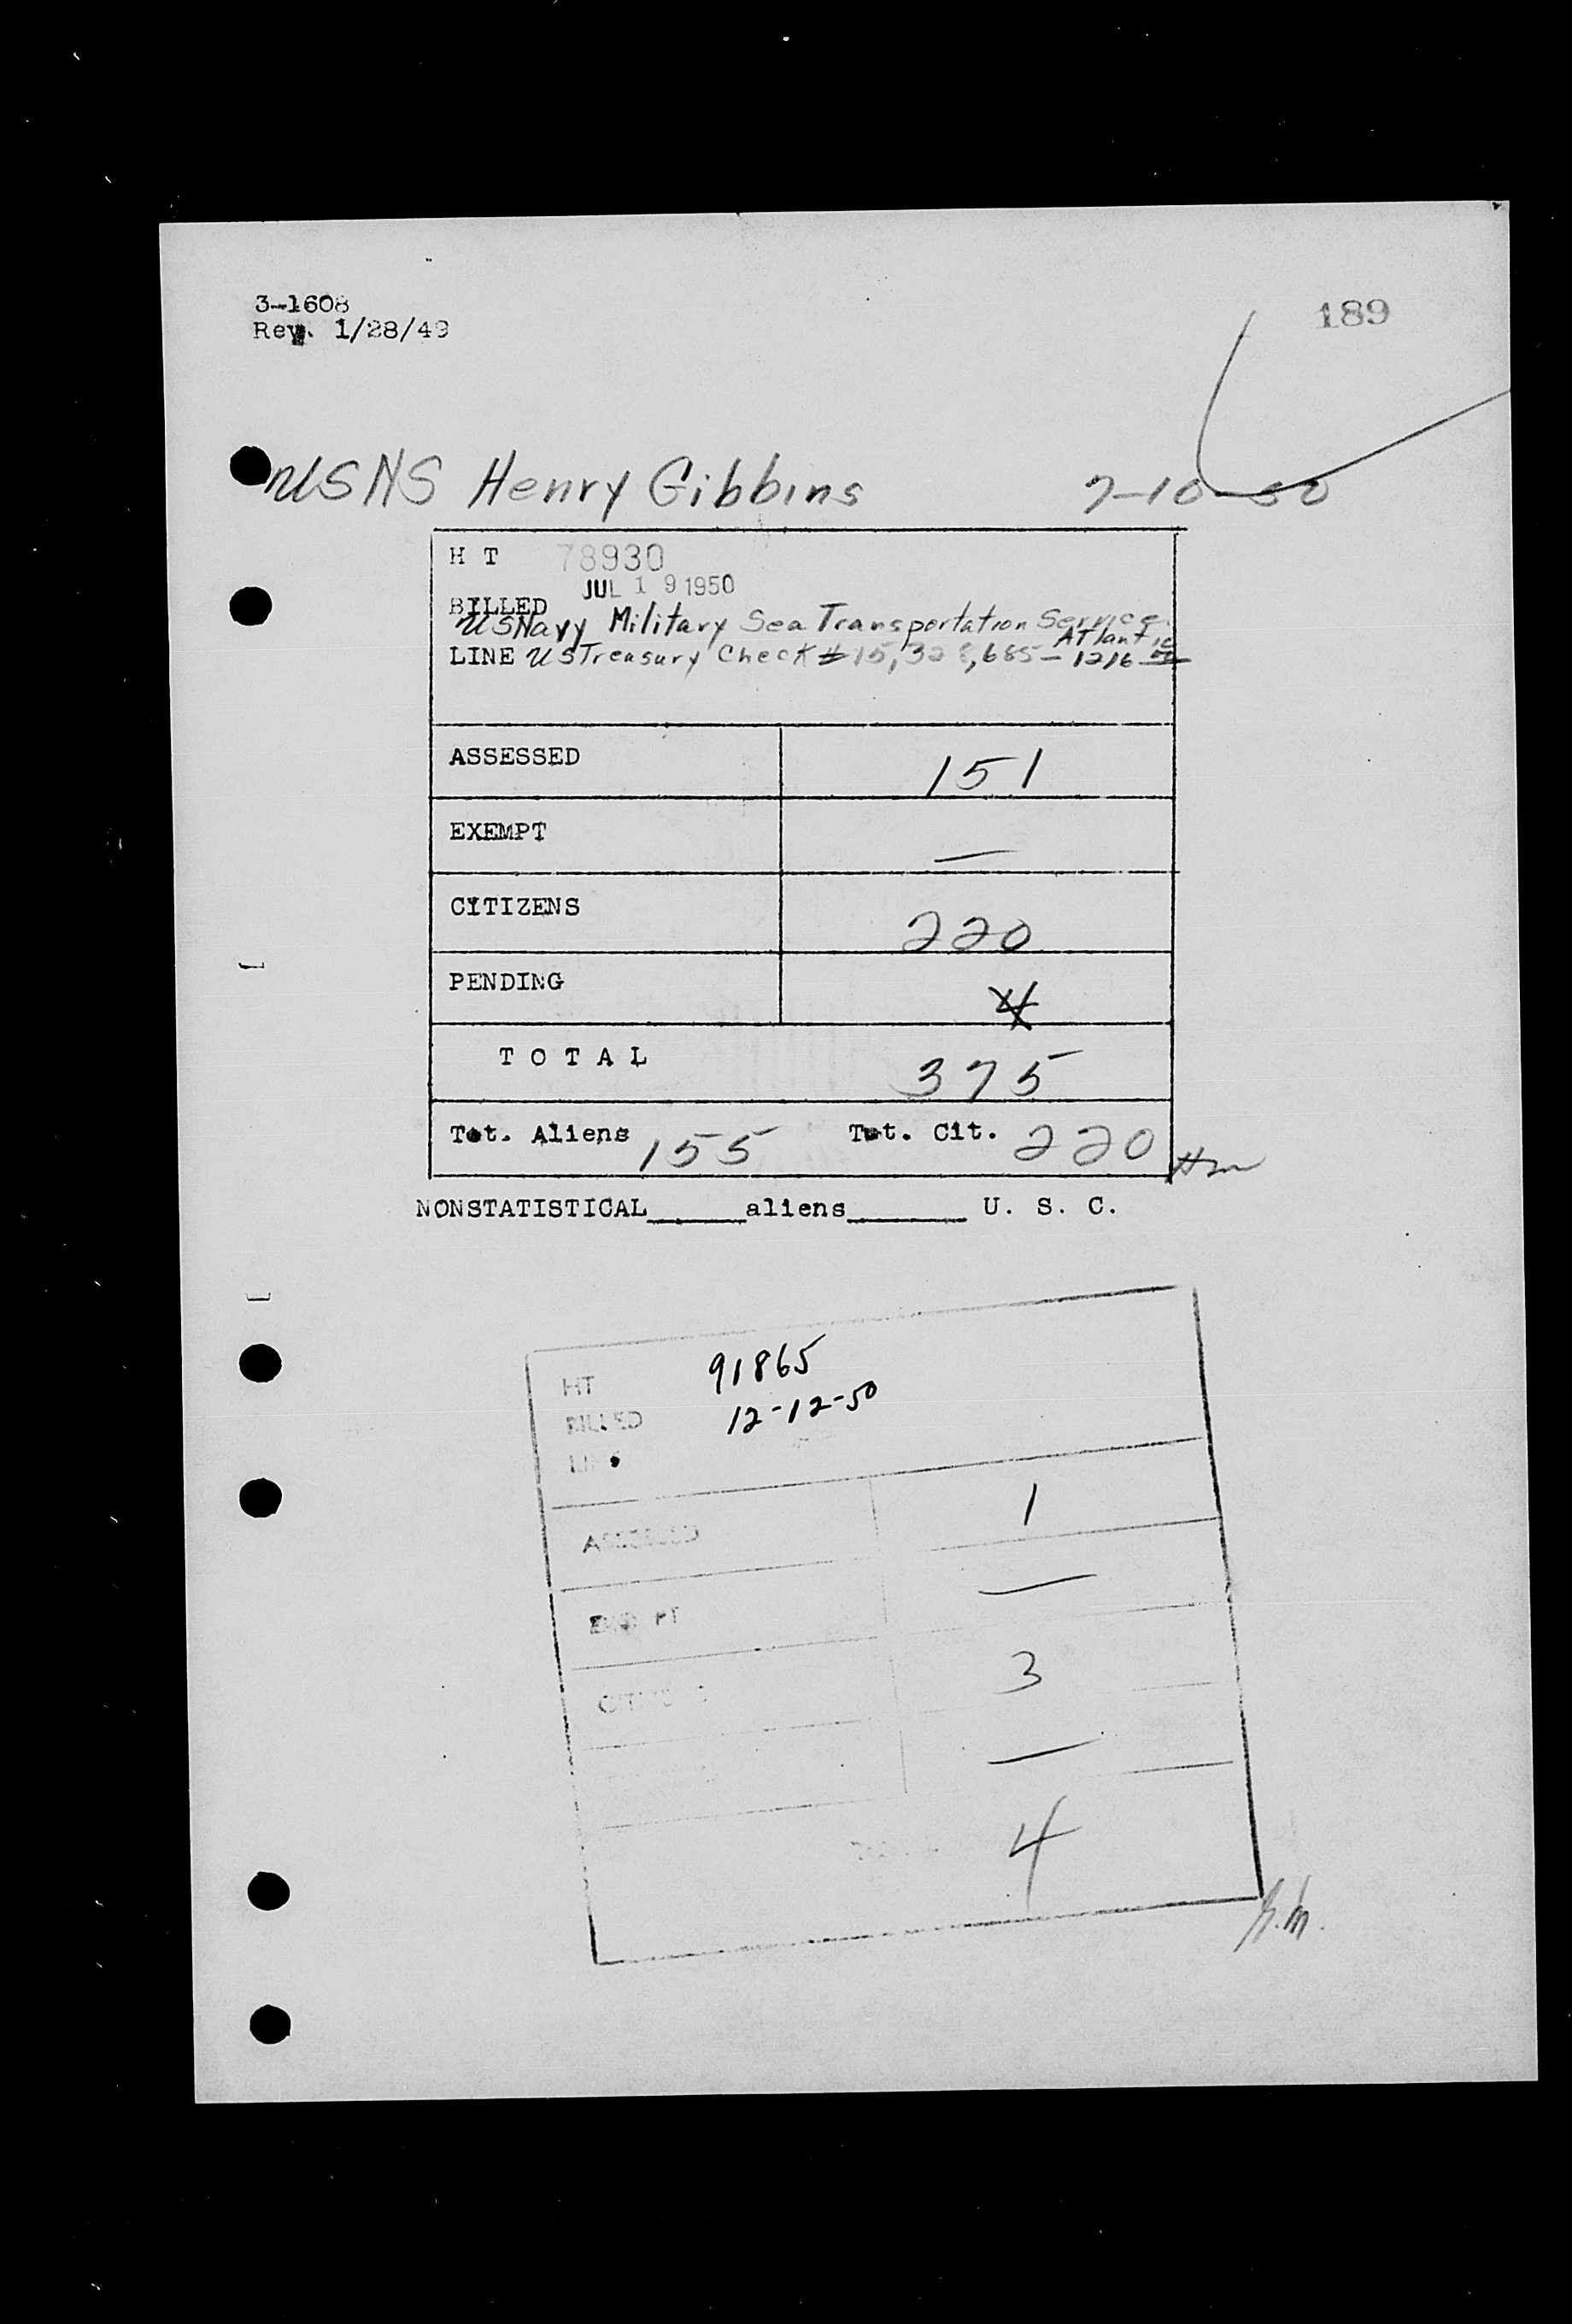 3-1608
Rev. 1/28/49
189
USNS Henry Gibbins 7-10-50
H T 78930
JUL 19 1950
BILLED
US Navy Military Sea Transportation Service
Atlantic
LINE US Treasury Check # 15,328,685 - 1216 00
ASSESSED 151
EXEMPT —
CITIZENS 220
PENDING 4
T O T A L 375
Tot. Aliens 155 Tot. Cit. 220
NONSTATISTICAL______aliens_______ U. S. C.
HT 91865
BILLED 12-12-50
LINE
ASSESSED 1
EXEMPT —
CITIZENS 3
—
4